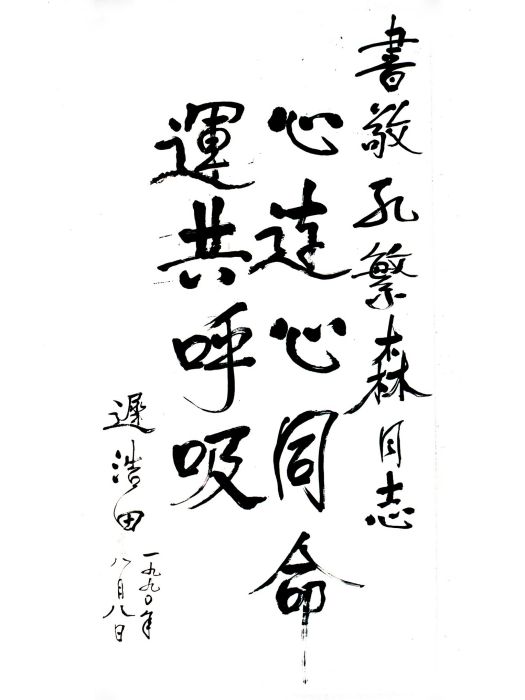 書敬孔繁森同志
心連心同命
運共呼吸
遲浩田
一九九〇年
八月八日